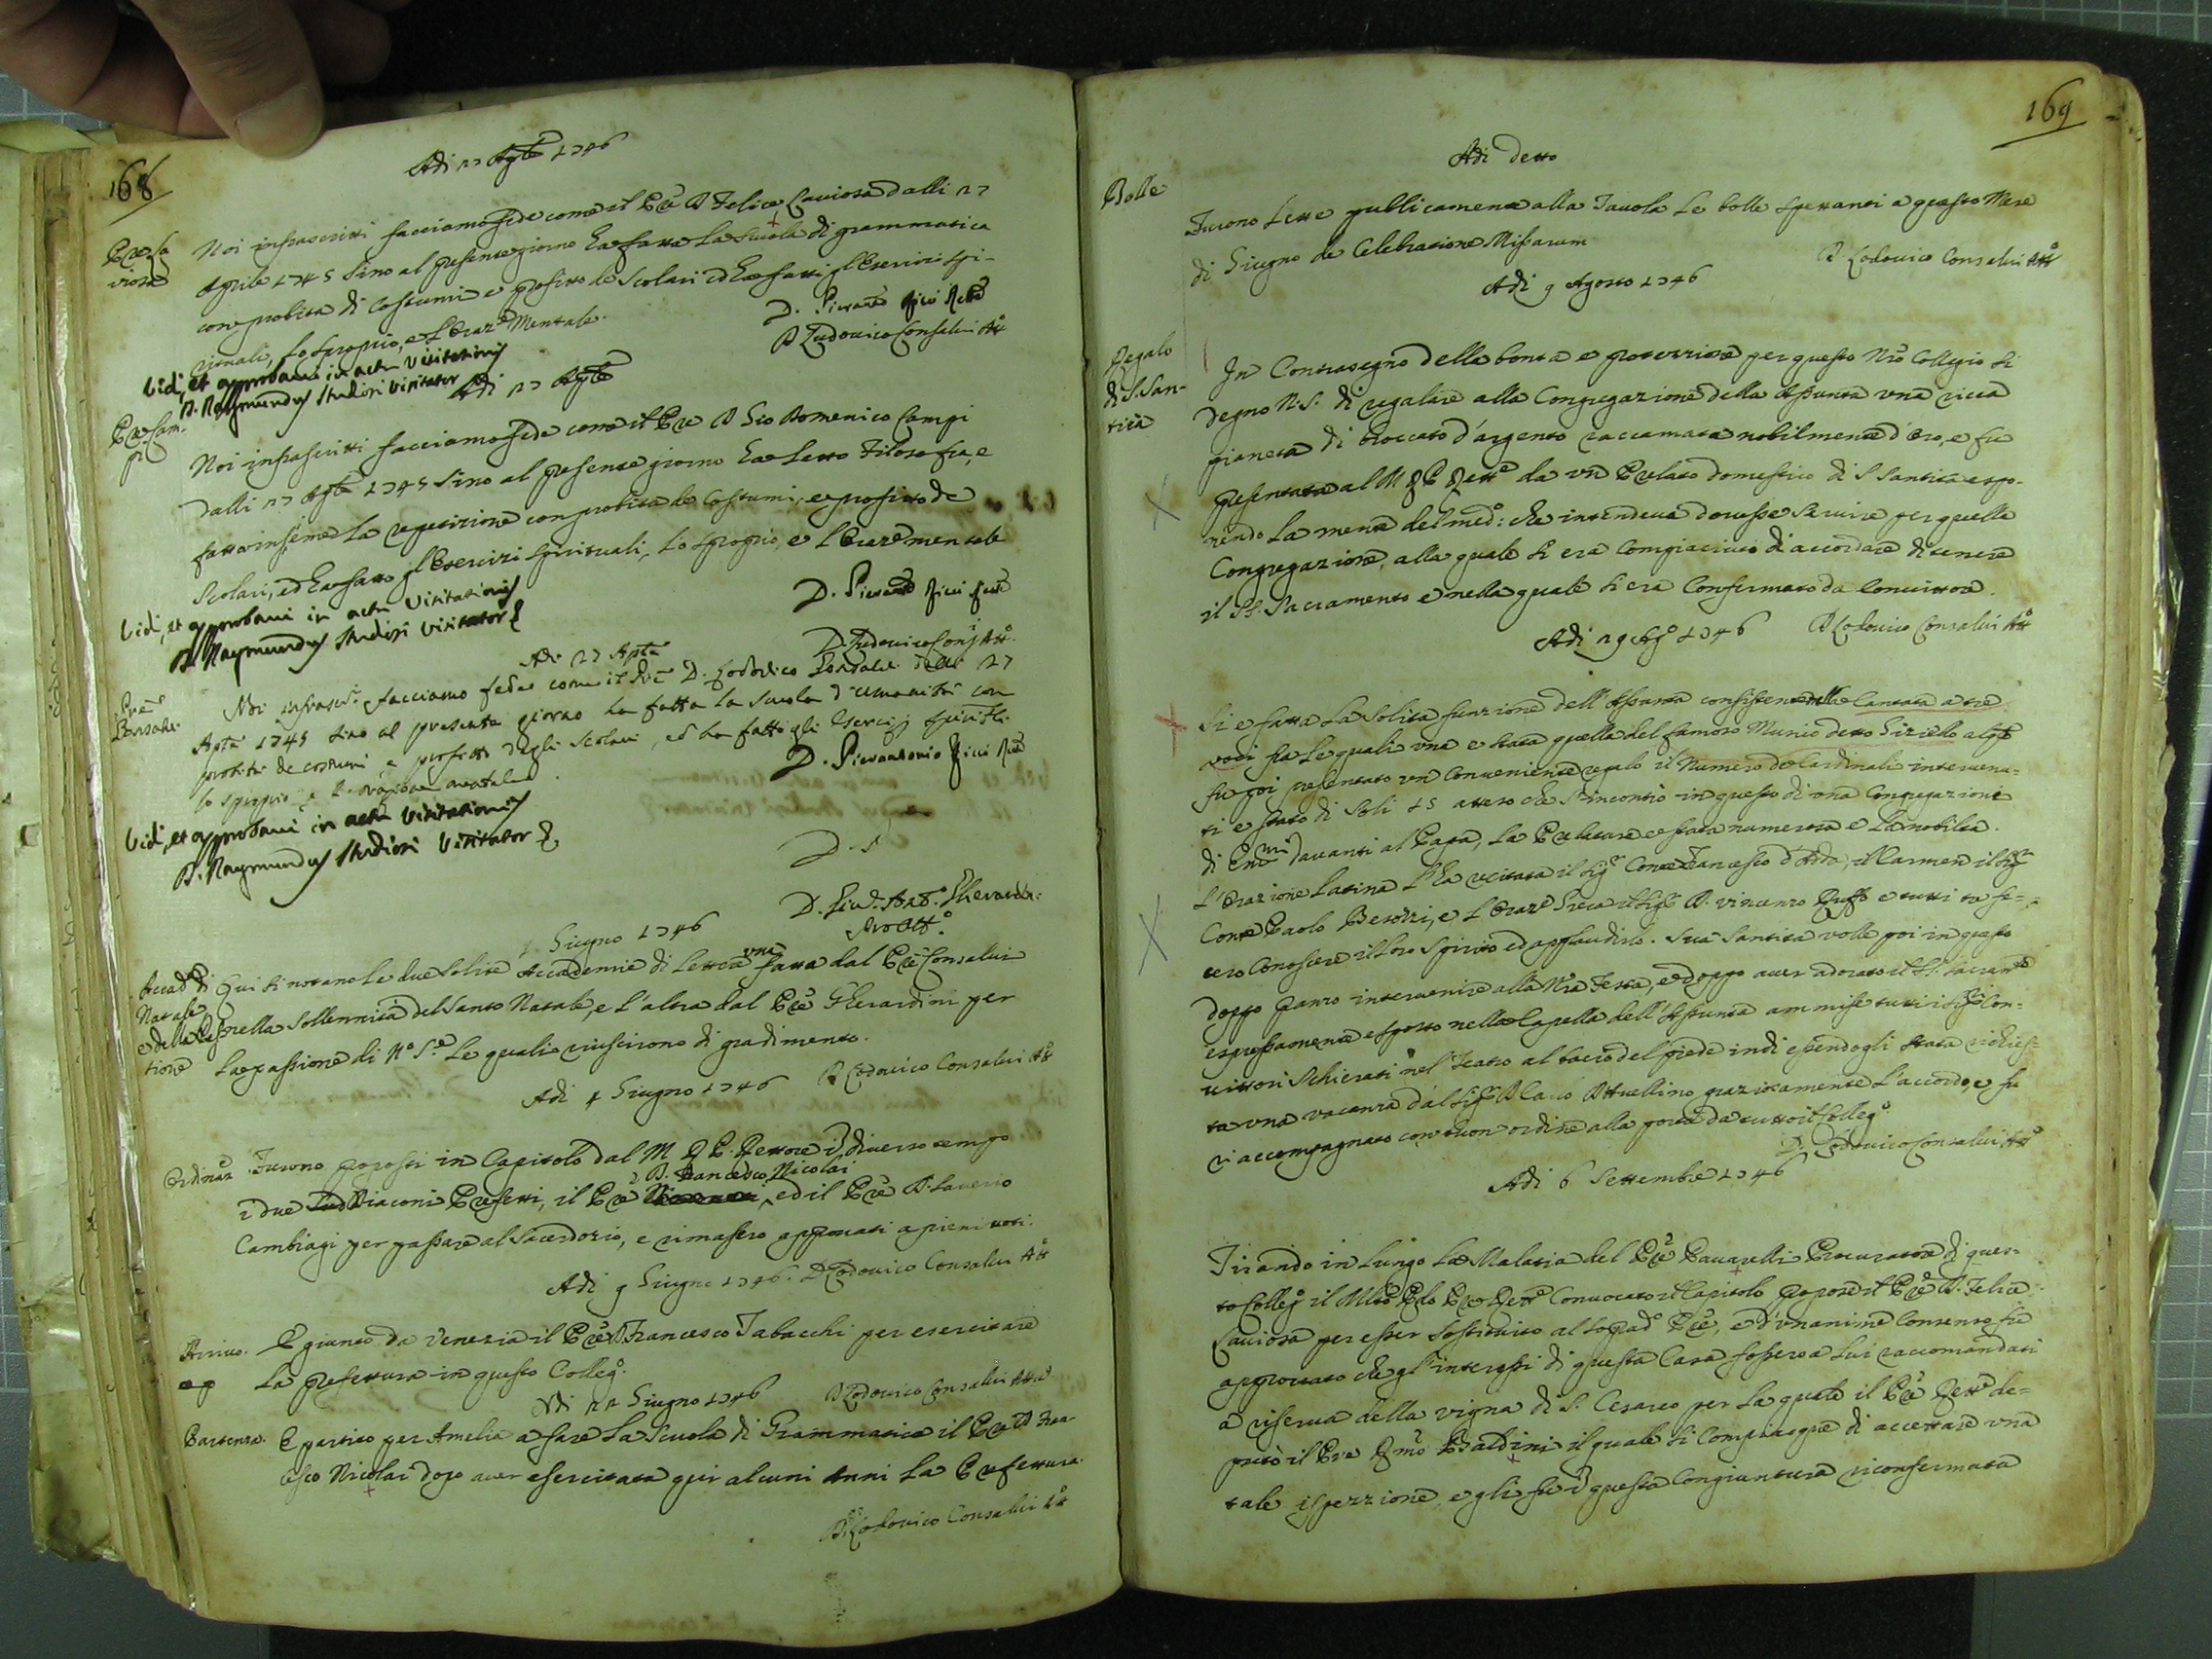 168
Adi 27 Aple 1746
Pre Ca
viosa
Noi infrascritti facciamo fede come il Pre D Felice Caviosa dalli 27
Aprile 1745 sino al presente giorno ha fatta la scuola di grammatica
con probità di Costumi e profitto de Scolari ed ha fatti gl'Esercizi Spi-
rituali, lo sproprio, e l'Oraze Mentale.
D. Pierantò Ricci Rettò
D Ludovico Consalvi Attò
Vidi, et approbavi in actu Visitationis
D. Raymundus Studiosi Visitator
Adi 27 Aple
Pre Cam-
pi
Noi infrascritti facciamo fede come il Pre D Gio Domenico Campi
dalli 27 Aple 1745 sino al presente giorno ha letto Filosofia, e
fatto insieme la repetizione con probità de Costumi, e profitto de
Scolari, ed ha fatto gl'Esercizi Spirituali, lo sproprio, e l'Oraze mentale
D. Pierantò Ricci Rettò
D Ludovico Consi Attò
Vidi, et approbavi in actu Visitationis
D. Raymundus Studiosi Visitator
Adi 27 Aple
Pre
Consalvi
Noi infrascti facciamo fede come il Pre D. Lodovico Consalvi dalli 27
Aple 1745 sino al presente giorno ha fatta la scuola d'umanità con
probità de costumi e profitto degli Scolari, ed ha fatto gli Esercizj Spirituli
lo sproprio e l'orazione mentale
D. Pierantonio Ricci Rettò
Vidi, et approbavi in actu Visitationis
D. Raymundus Studiosi Visitator
D. S
D. Giu. Anto. Gherardini
Pro Atto.
Giugno 1746
Accad. di
Natale
e della Pas-
sione
Qui si notano le due solite Accademie di Lettere una fatta dal Pre Consalvi
nella Sollennità del Santo Natale, e l'altra dal Pre Gherardini per
la passione di No. Sre le quali riuscirono di gradimento.
D Lodovico Consalvi Attò
Adi 4 Giugno 1746
Ordinaz
Furono proposti in Capitolo dal M. R. P. Rettore in diverso tempo
D. Francesco Nicolai
i due Diaconi Prefetti, il Pre, ed il Pre D. Saverio
Cambiagi per passare al Sacerdozio, e rimasero approvati a pieni voti.
D Lodovico Consalvi Attò
Adi 9 Giugno 1746.
Arrivo.
È giunto da Venezia il Pre D Francesco Tabacchi per esercitare
la prefettura in questo Collego.
D Lodovico Consalvi Attò
Adi 22 Giugno 1746
Partenza.
È partito per Amelia a fare la Scuola di Grammatica il Pre D Fran-
cesco Nicolai dopo aver esercitata qui alcuni Anni la Prefettura.
D Lodovico Consalvi Attò
169
Adi detto
Bolle
Furono Lette publicamente alla Tavola le bolle spettanti a questo Mese
di Giugno de Celebratione Missarum
D Lodovico Consalvi Attò
Adi 9 Agosto 1746
Regalo
di S. San-
tità
In Contrasegno della bontà e protezzione per questo Nro Collegio si
degnò N. S. di regalare alla Congregazione della Assunta una ricca
pianeta di broccato d'argento raccamata nobilmente d'oro, e fu
presentata al M R P Rettre da un Prelato domestico di S Santità espo-
nendo la mente del medo: che intendeva dovesse servire per quella
Congregazione, alla quale si era Compiaciuto di accordare di tenere
il SS. Sacramento e nella quale si era Confermato da Convittore.
D Lodovico Consalvi Attò
Adi 29 Ago 1746
Si è fatta la solita funzione dell'Assunta consistente nella Cantata a tre
voci fra le quali una è stata quella del famoso Musico detto Giziello al qle
fu poi presentato un Conveniente regalo il Numero de Cardinali intervenu-
ti è stato di soli 15 atteso che s'incontrò in questo dì una Congregazione
di Emmi davanti al Papa, la Prelatura è stata numerosa e la nobiltà.
L'Orazione Latina l'ha recitata il Sigr Conte Francesco d'Adda, il Carmen il Sigr
Conte Paolo Besozzi, e l'Oraze Greca il Sigr D. Vincenzo Ruffo e tutti tre fe-
cero Conoscere il loro Spirito ed applaudirlo. Sua Santità volle poi in questo
doppo pranzo intervenire alla Nra Festa, e doppo aver adorato il SS. Sacramto
espressamente esposto nella Capella dell'Assunta ammise tutti i Sigri Con-
vittori Schierati nel Teatro al bacio del piede indi essendogli stata richies-
ta una vacanza dal Sigr D Carlo d'Avellino graziosamente l'accordò, e fu
riaccompagnato con buon ordine alla porta da tutto il Collego.
D Lodovico Consalvi Attò
Adi 6 Settembre 1746
Tirando in lungo la Malatia del Pre Pavarelli Procuratore di ques-
to Collego il Mlto Rdo Pre Rettre Convocato il Capitolo propose il Pre D. Felice
Caviosa per esser sostituito al sopado Pre, e d'unanime Consenso fu
approvato che gl'interessi di questa Casa fossero a lui raccomandati
a riserva della vigna di S. Cesareo per la quale il Pre Rettre de-
putò il Pre Rmo Baldini il quale si Compiacque di accettare una
tale ispezzione, e gli fu in questa Congiuntura riconfermata